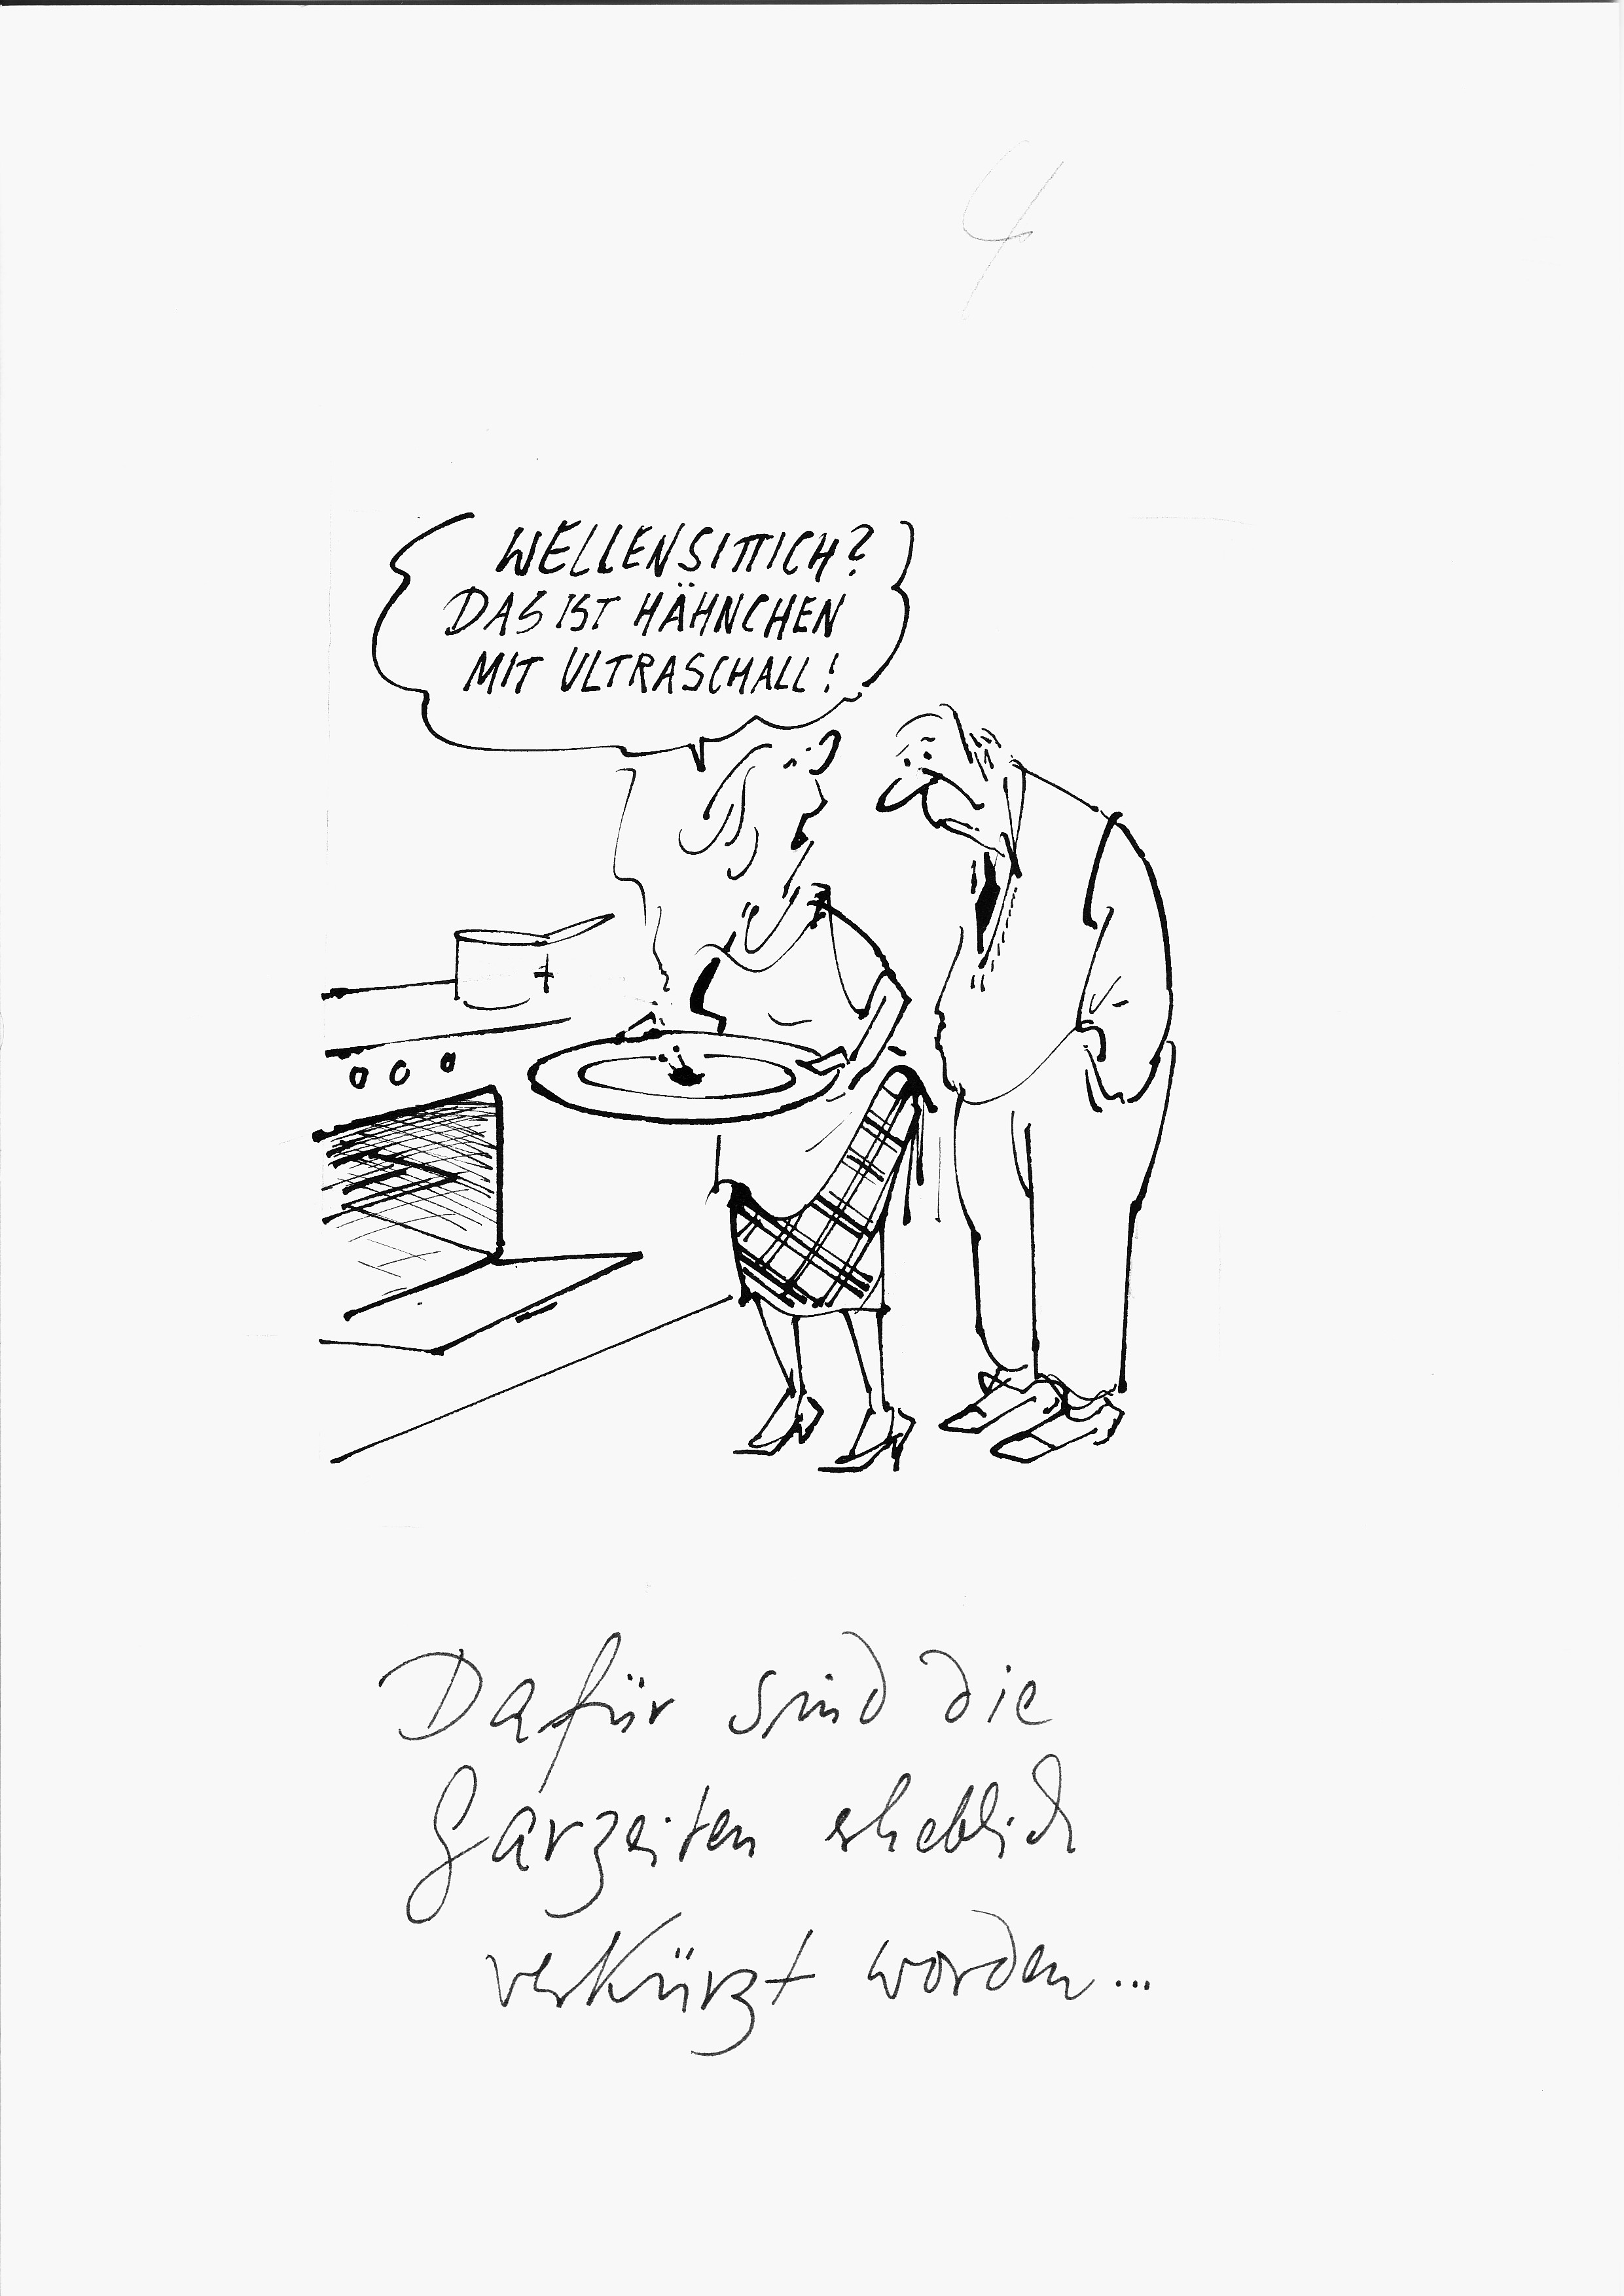 4
WELLENSITTICH?
DAS IST HÄHNCHEN
MIT ULTRASCHALL!
Dafür sind die
Garzeiten erheblich
verkürzt worden...